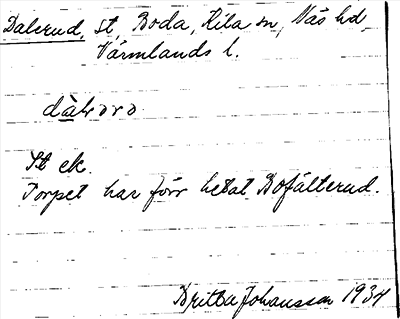 Dalerud, st, Boda, Kila sn, Näs hd,
Värmlands l.
St ek.
Torpet har förr hetat Bofälterud.
Britta Johansson 1934